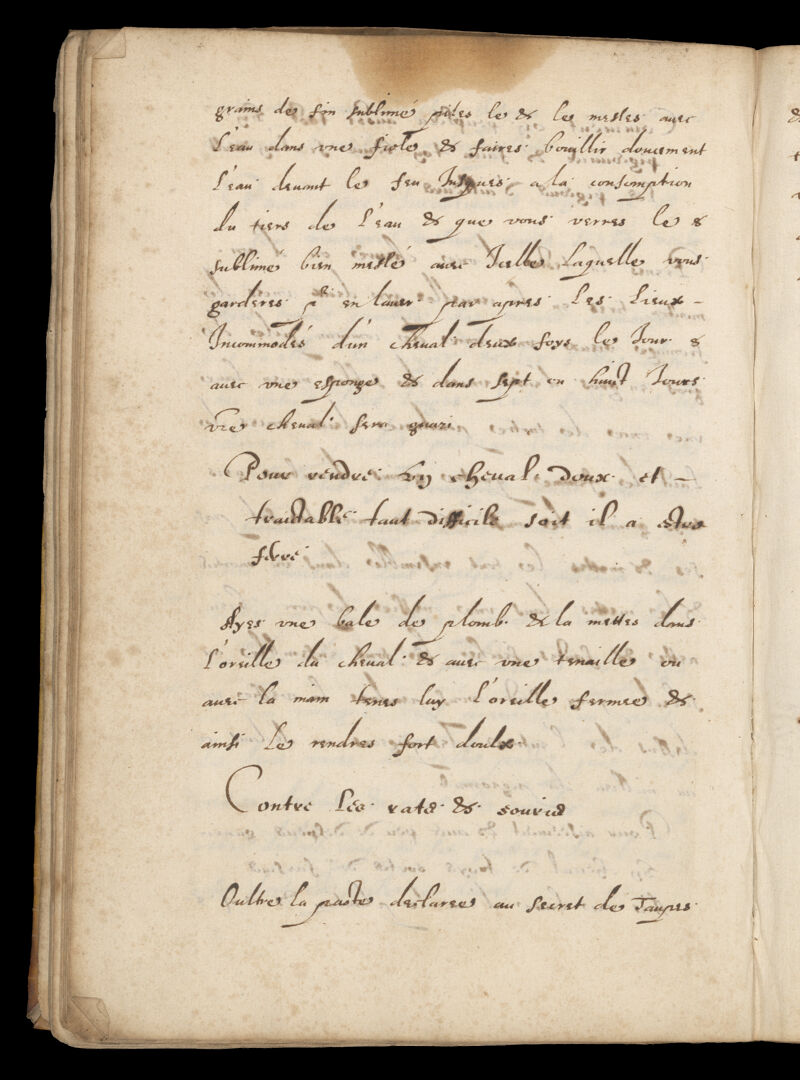 grains de fin sublimé piles le & le mesles avec
L'eau dans vne fiole & faires bouillir doucement
L'eau deuant le feu Jusques a la consomption
du tiers de L'eau & que vous verres le &
sublimé bien meslé auec Jcelle Laquelle vous
garderes pr en lauer par apres Les Lieux -
Jncommodés d'un cheual deux foys le Jour &
auec vne esponge & dans sept ou huict Jours
vre cheual sera guari
Pour rendre Vn cheual doux et -
traictable tant difficile soit il a estre
ferré
Ayes vne bale de plomb & la mettes dans
L'oreille du cheual & auec vne tenaille ou
auec la main tenes luy L'oreille fermee &
ainsi Le rendres fort doulx
Contre Les rats & souris
Oultre la paste declaree au secret de Taupes